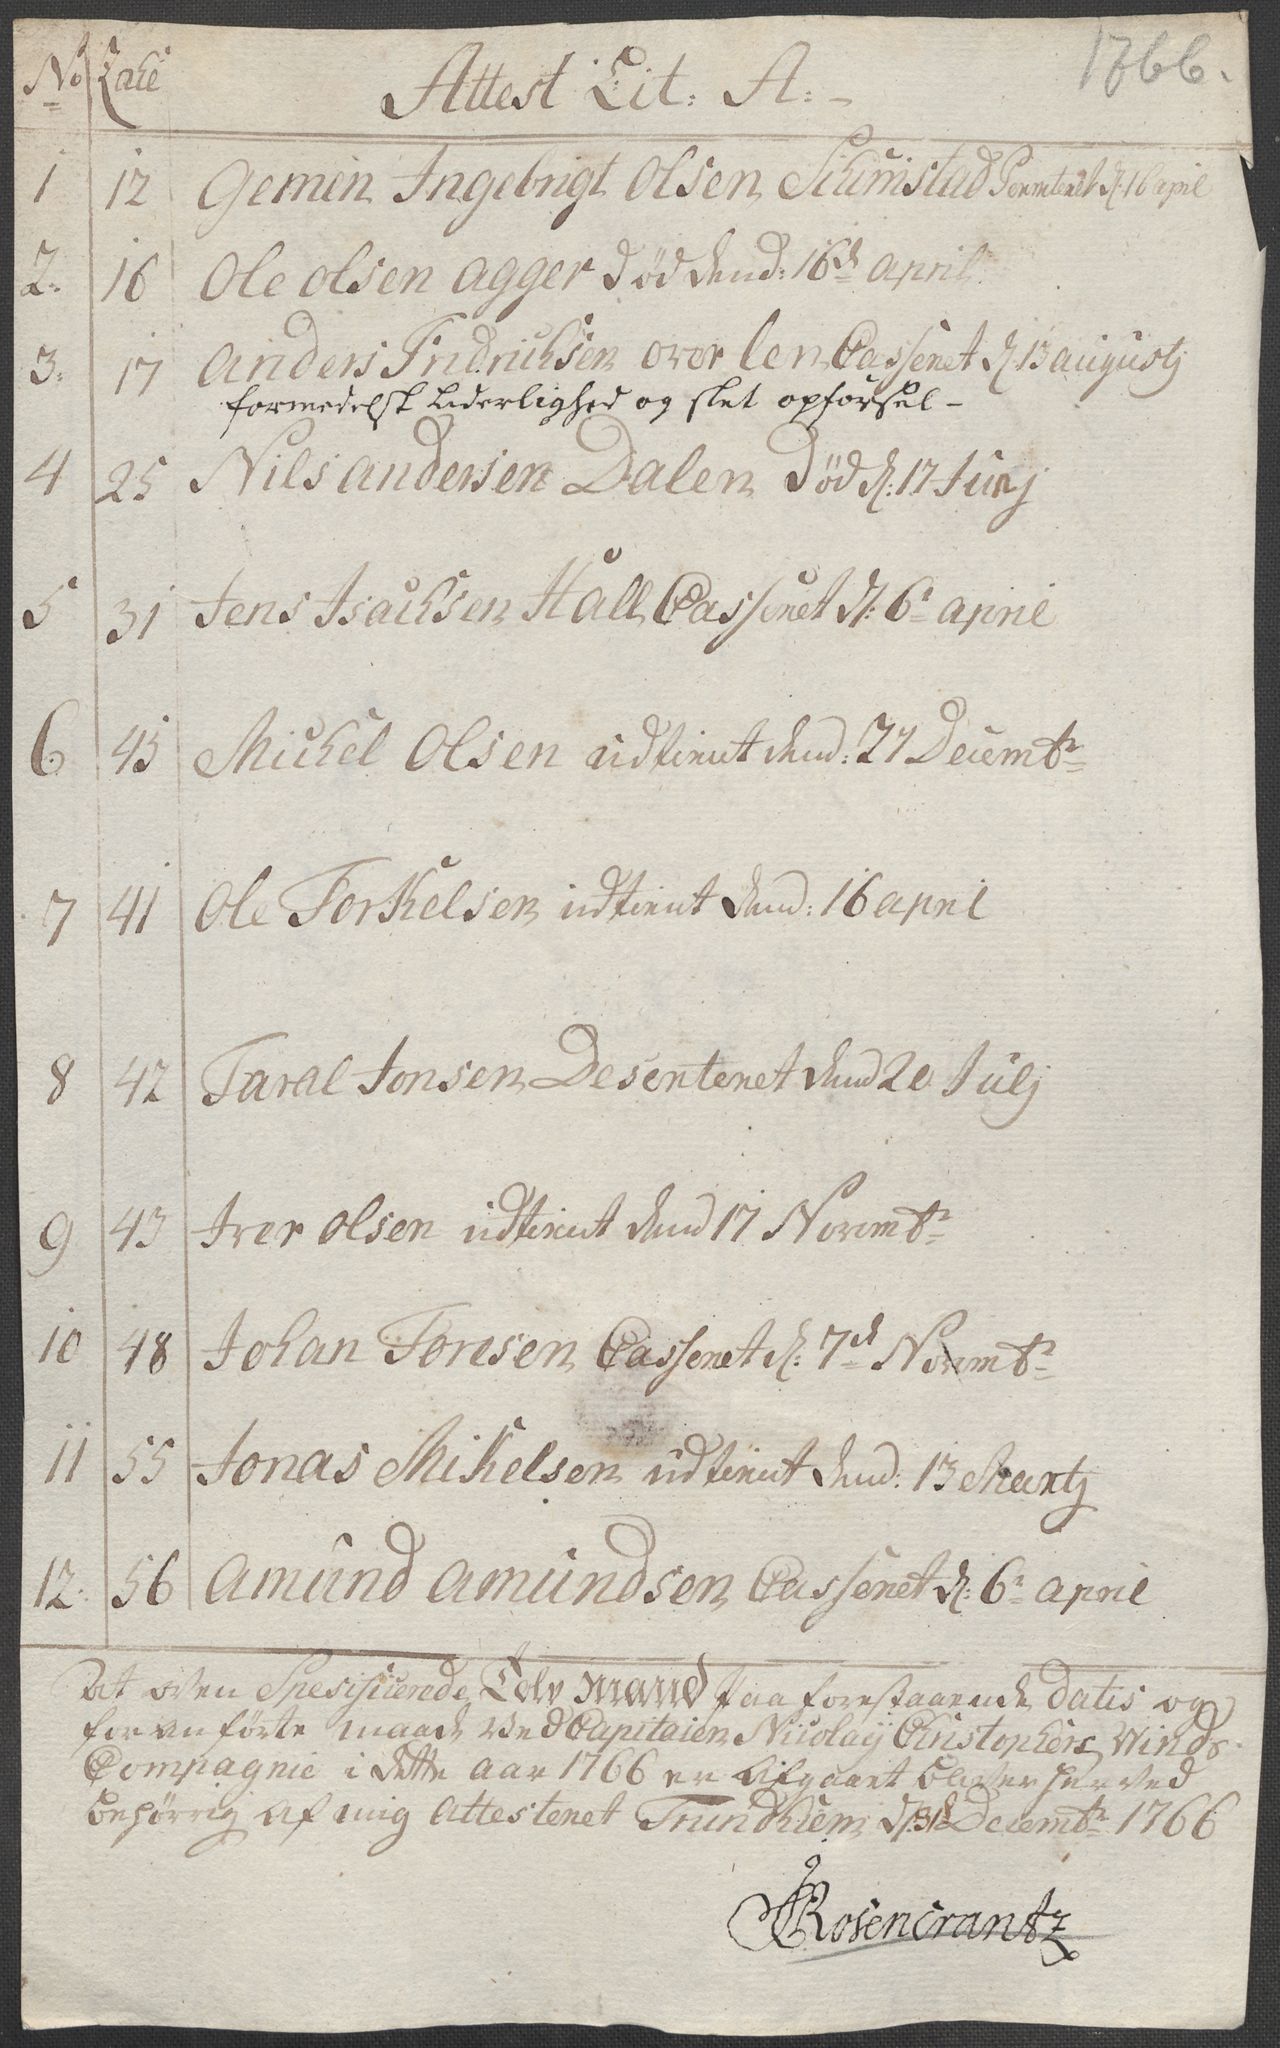 1766.
No Lahe Attest Lit: A:-
1 12 Gemen Ingebrigt Olsen d: 16 april
2: 16 Ole Olsen Agger död dend: 16de april
3: 17 Anders Fridrichsen over len Casseret d: 13 augustj
formedelst Liderlighed og slet opførsel -
4 25 Nils Andersen Dalen död d: 17 Junj
5 31 Jens Isachsen Hall Casseret d: 6te april
6 45 Michel Olsen udtient dend: 27 Decembr
7 41 Ole Torkelsen udtient dend: 16 april
8 42 Taral Jonsen Deserteret dend 20 Julj
9 43 Iver Olsen udtient dend 17 Novembr
10 48 Johan Toresen Casseret d: 7de Novembr
11 55 Jonas Mikelsen udtient dend: 13 Martj
12: 56 Amund Amundsen Casseret d: 6te april
At oven Spesificerede Tolv Mand paa forestaaende Datis og
foranførte maade ved Capitaien Nicolaij Christophers Winds
Compagnie i dette aar 1766 er afgaaet bliver herved
behørrig af mig Attesteret Trundhiem d: 31de Decembr 1766
Rosencrantz